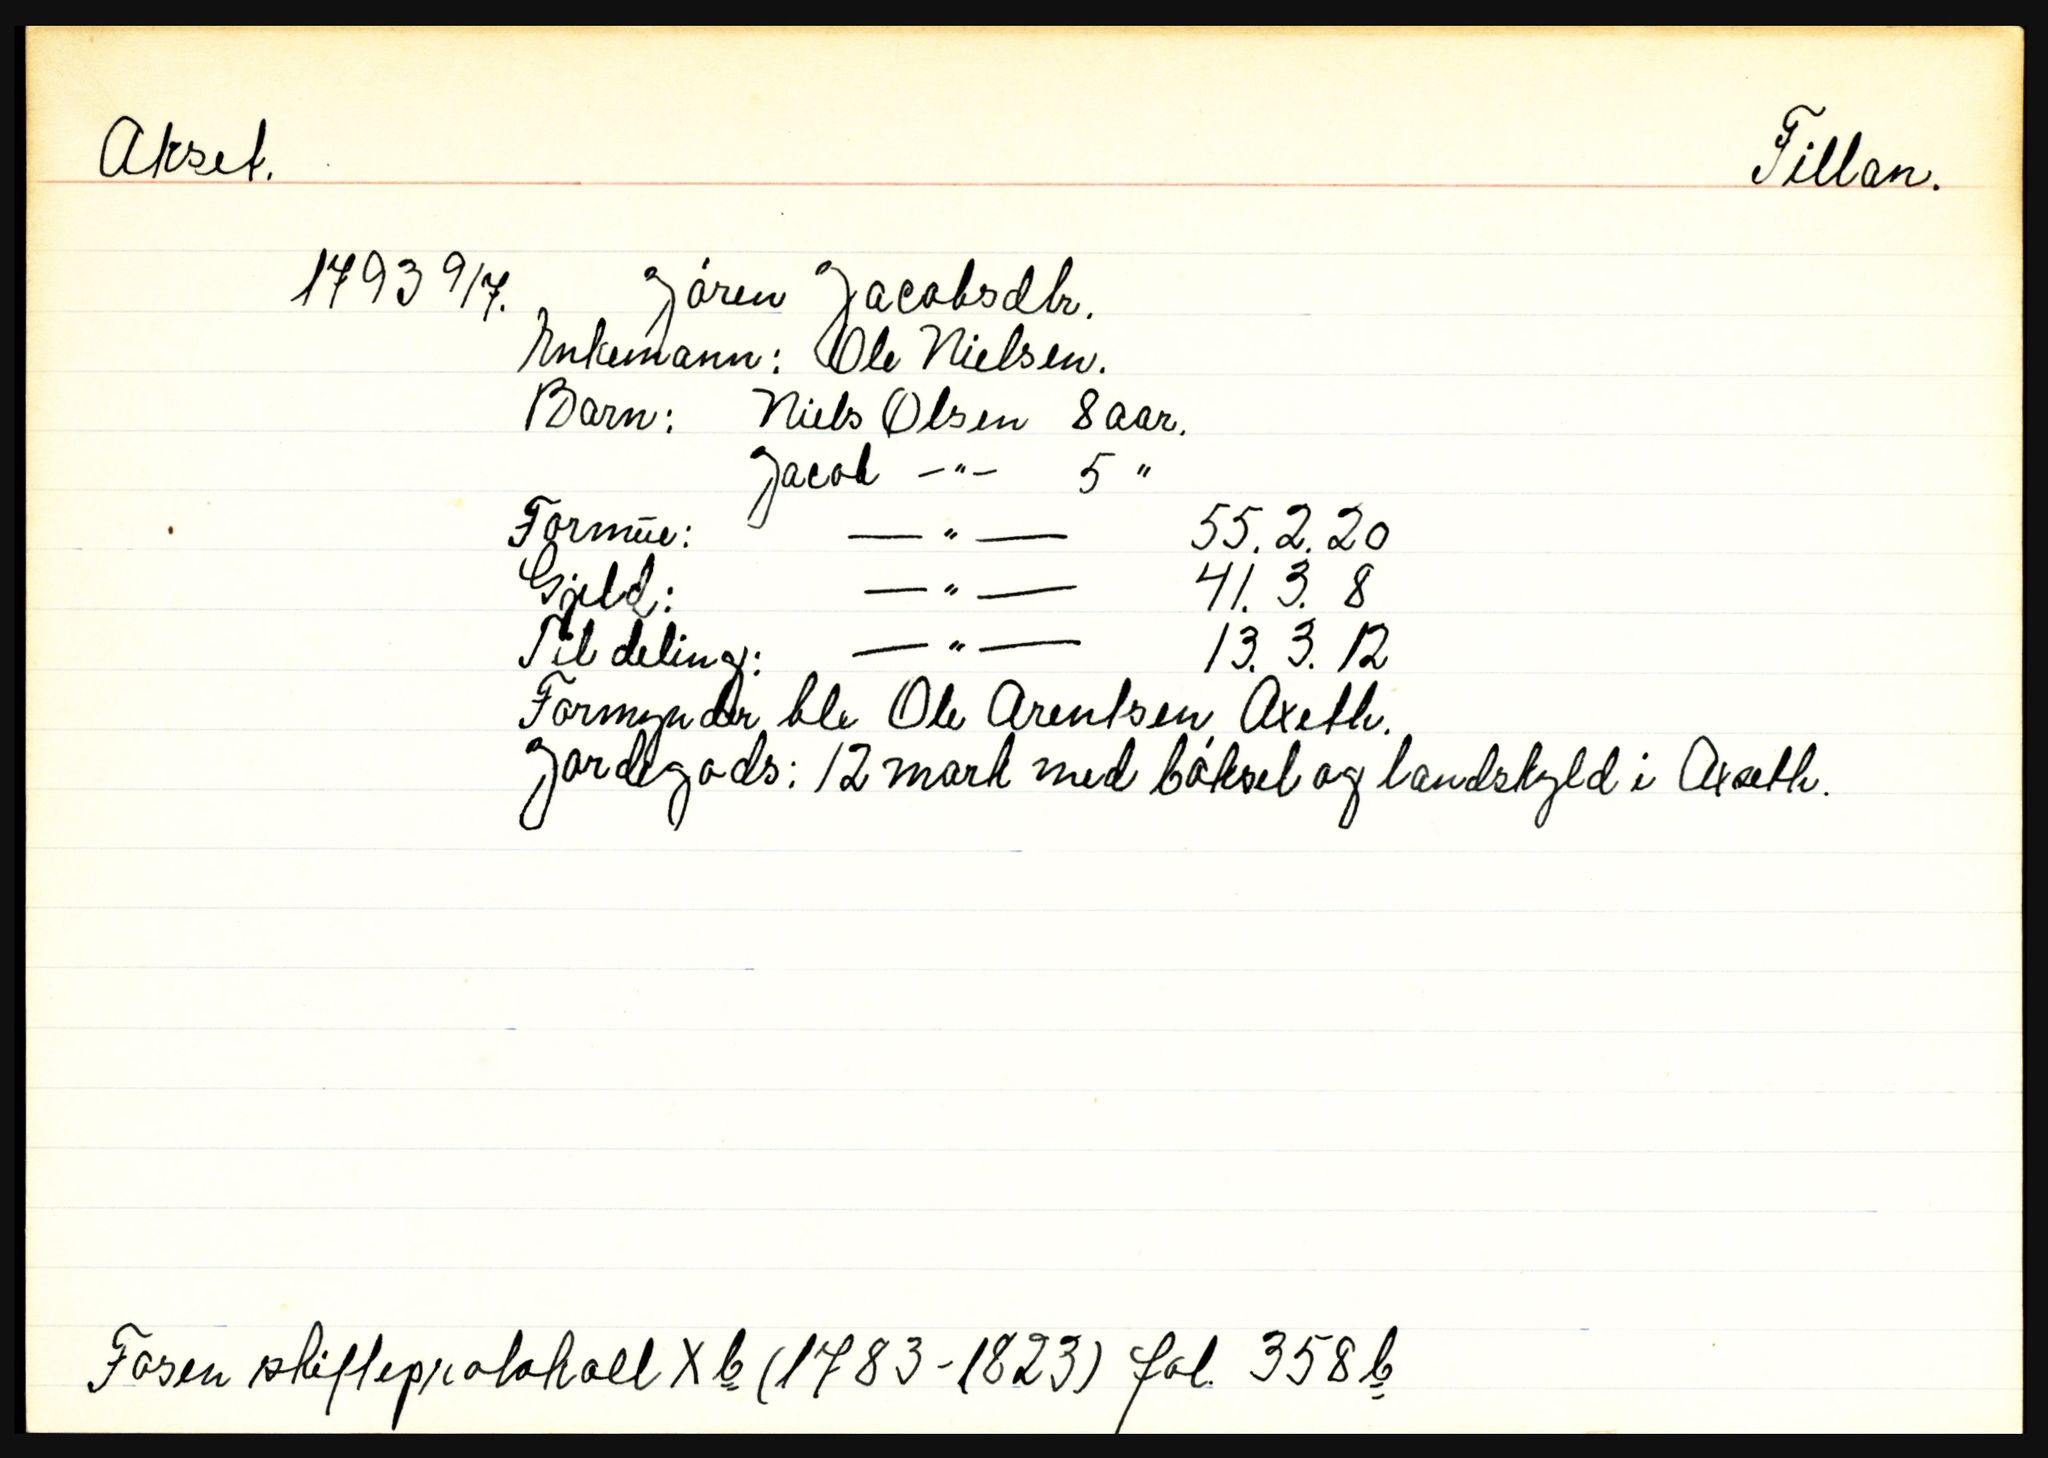 Akset.
Fillan.
1793 9/7. Jóren Jacobsdtr.
Enkemann: Ole Nielsen.
Barn: Niels Olsen 8 aar.
Jacob -"- 5 "
Formūe: — " — 55. 2. 20
Gjeld: — " — 41. 3. 8
Til deling: — " — 13. 3. 12
Formynder ble Ole Arentsen Axeth.
Jordegods: 12 mark med bóksel og landskyld i Axseth.
Fosen skifteprotokoll X b (1783-1823) fol. 358 b